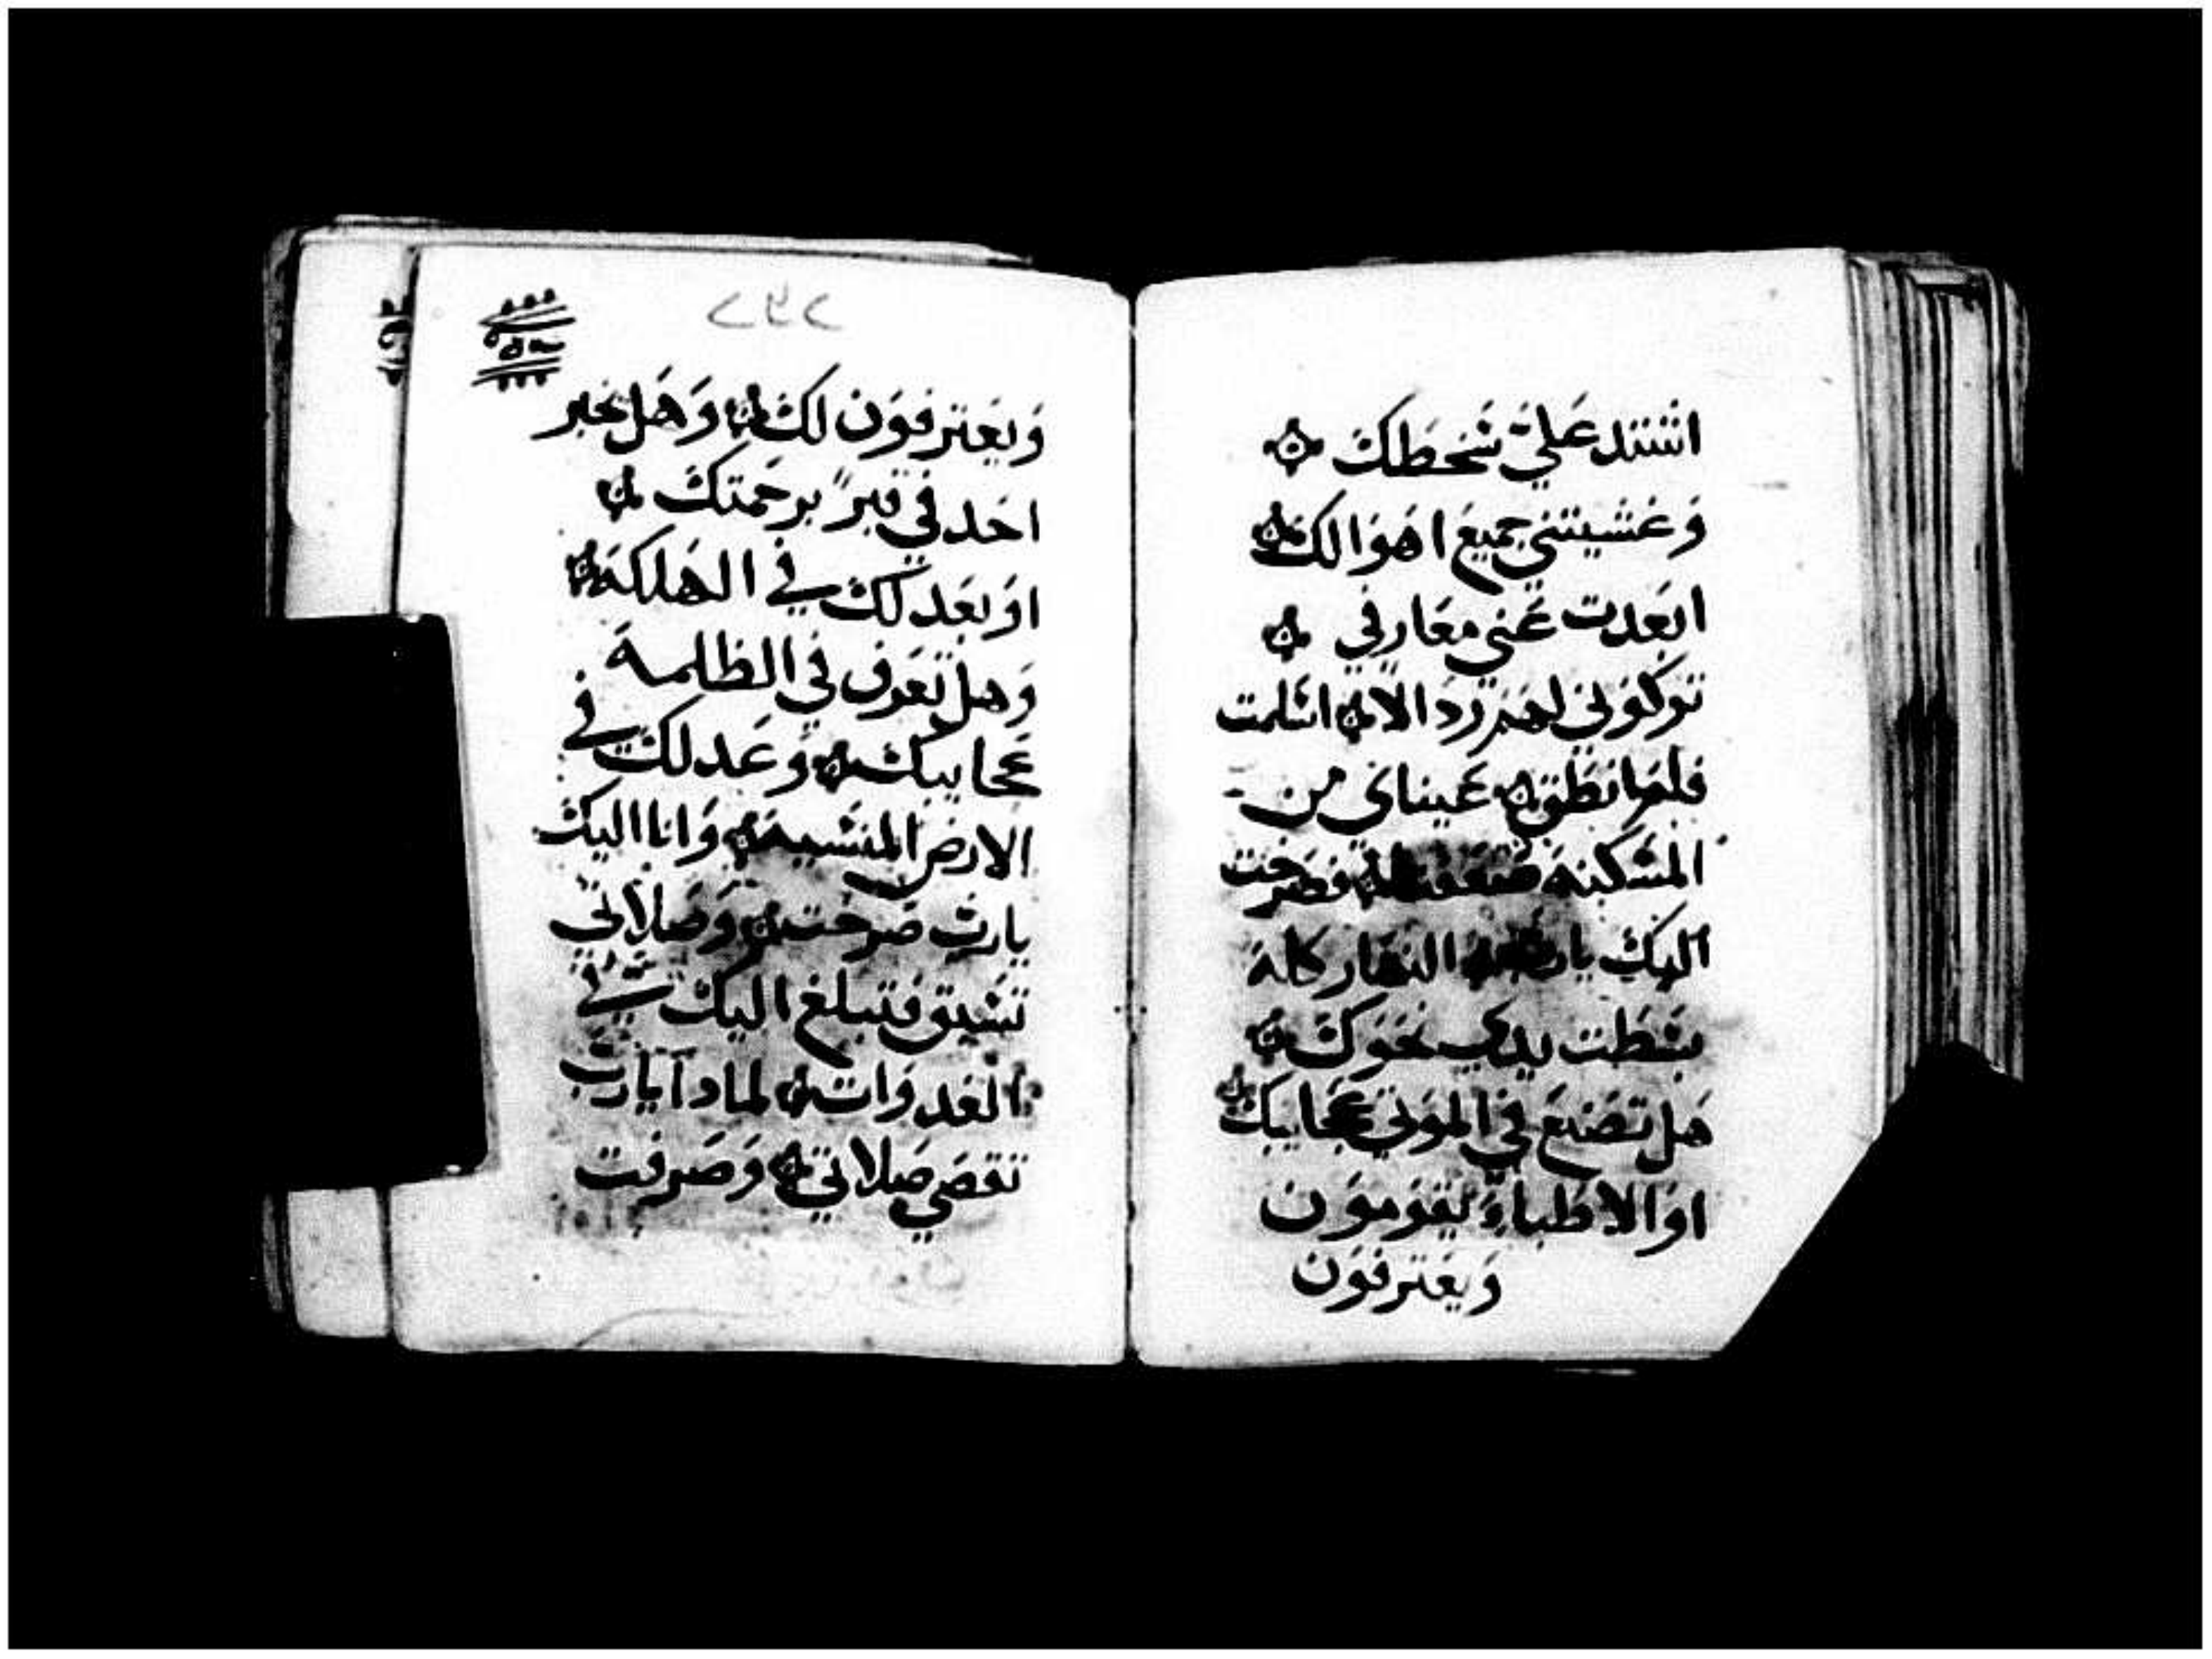 اشتد عليّ سَخطك
وَغشيتني جميع اهَوَالك
ابعدت عَني معَارفي
تركوني لهم رذالا اسلمت
فلم انطق عَيناي من
المسَكنة ضعفتا فصرخت
اليك يارب النهَار كله
بسَطت يدي نحوَك
هَل تصَنع في الموَتي عجايبك
اوَالاطباء يقوَموَن
وَيعَترفوَن
٢٤٢
وَيعَترفوَن لك وَهَل يخبر
احد في قبرٍ برحَمتك
اوَبعَدلك في الهَلكة
وَهل تعَرف في الظلمة
عجايبك وَعَدلك في
الارض المنسَية وَانا اليك
يارب صَرخت وَصَلاتي
تسَبق فتبلغ اليك في
الغدوَات لماذا يارب
تقصَي صَلاتي وَصَرفت